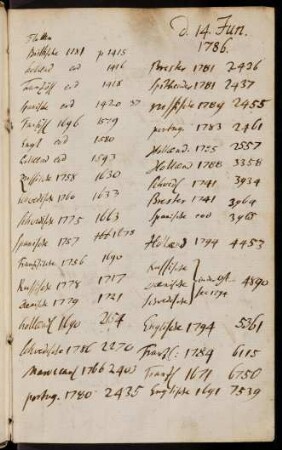 Flotten
Brittische 1781 p 1415
holland eod 1416
Französ eod 1418
Spanische eod 1420
Französ 1696 1579
Engl eod 1580
eod 1593
Russische 1758 1630
Schwedische 1760 1633
Schwedische 1775 1663
Spanische 1757 1678
Französische 1786 1690
Russische 1778 1717
Dänische 1779 1721
holland 1690
Schwedische 1786 2270
1766 2403
portug. 1780 2435
d. 14. Jun.
1786.
Brester 1781 2426
Spitheader 1781 2437
russische 1789 2455
portug. 1783 2461
Holland. 1785 2557
Holland 1788 3358
Schwed 1741 3934
Brester 1741 3964
Spanische eod 3965
Holland 1744 4453
Russische
Dänische
Schwedische
4890
Englische 1794 5761
Französ: 1784 6115
Französ 1671 6750
Englische 1691 7539